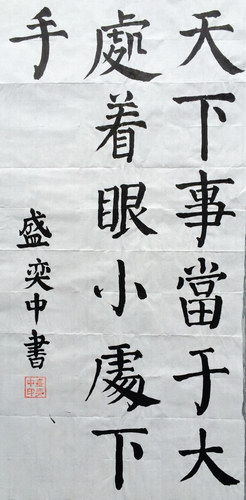 天下事當于大
處着眼小處下
手
盛奕中書